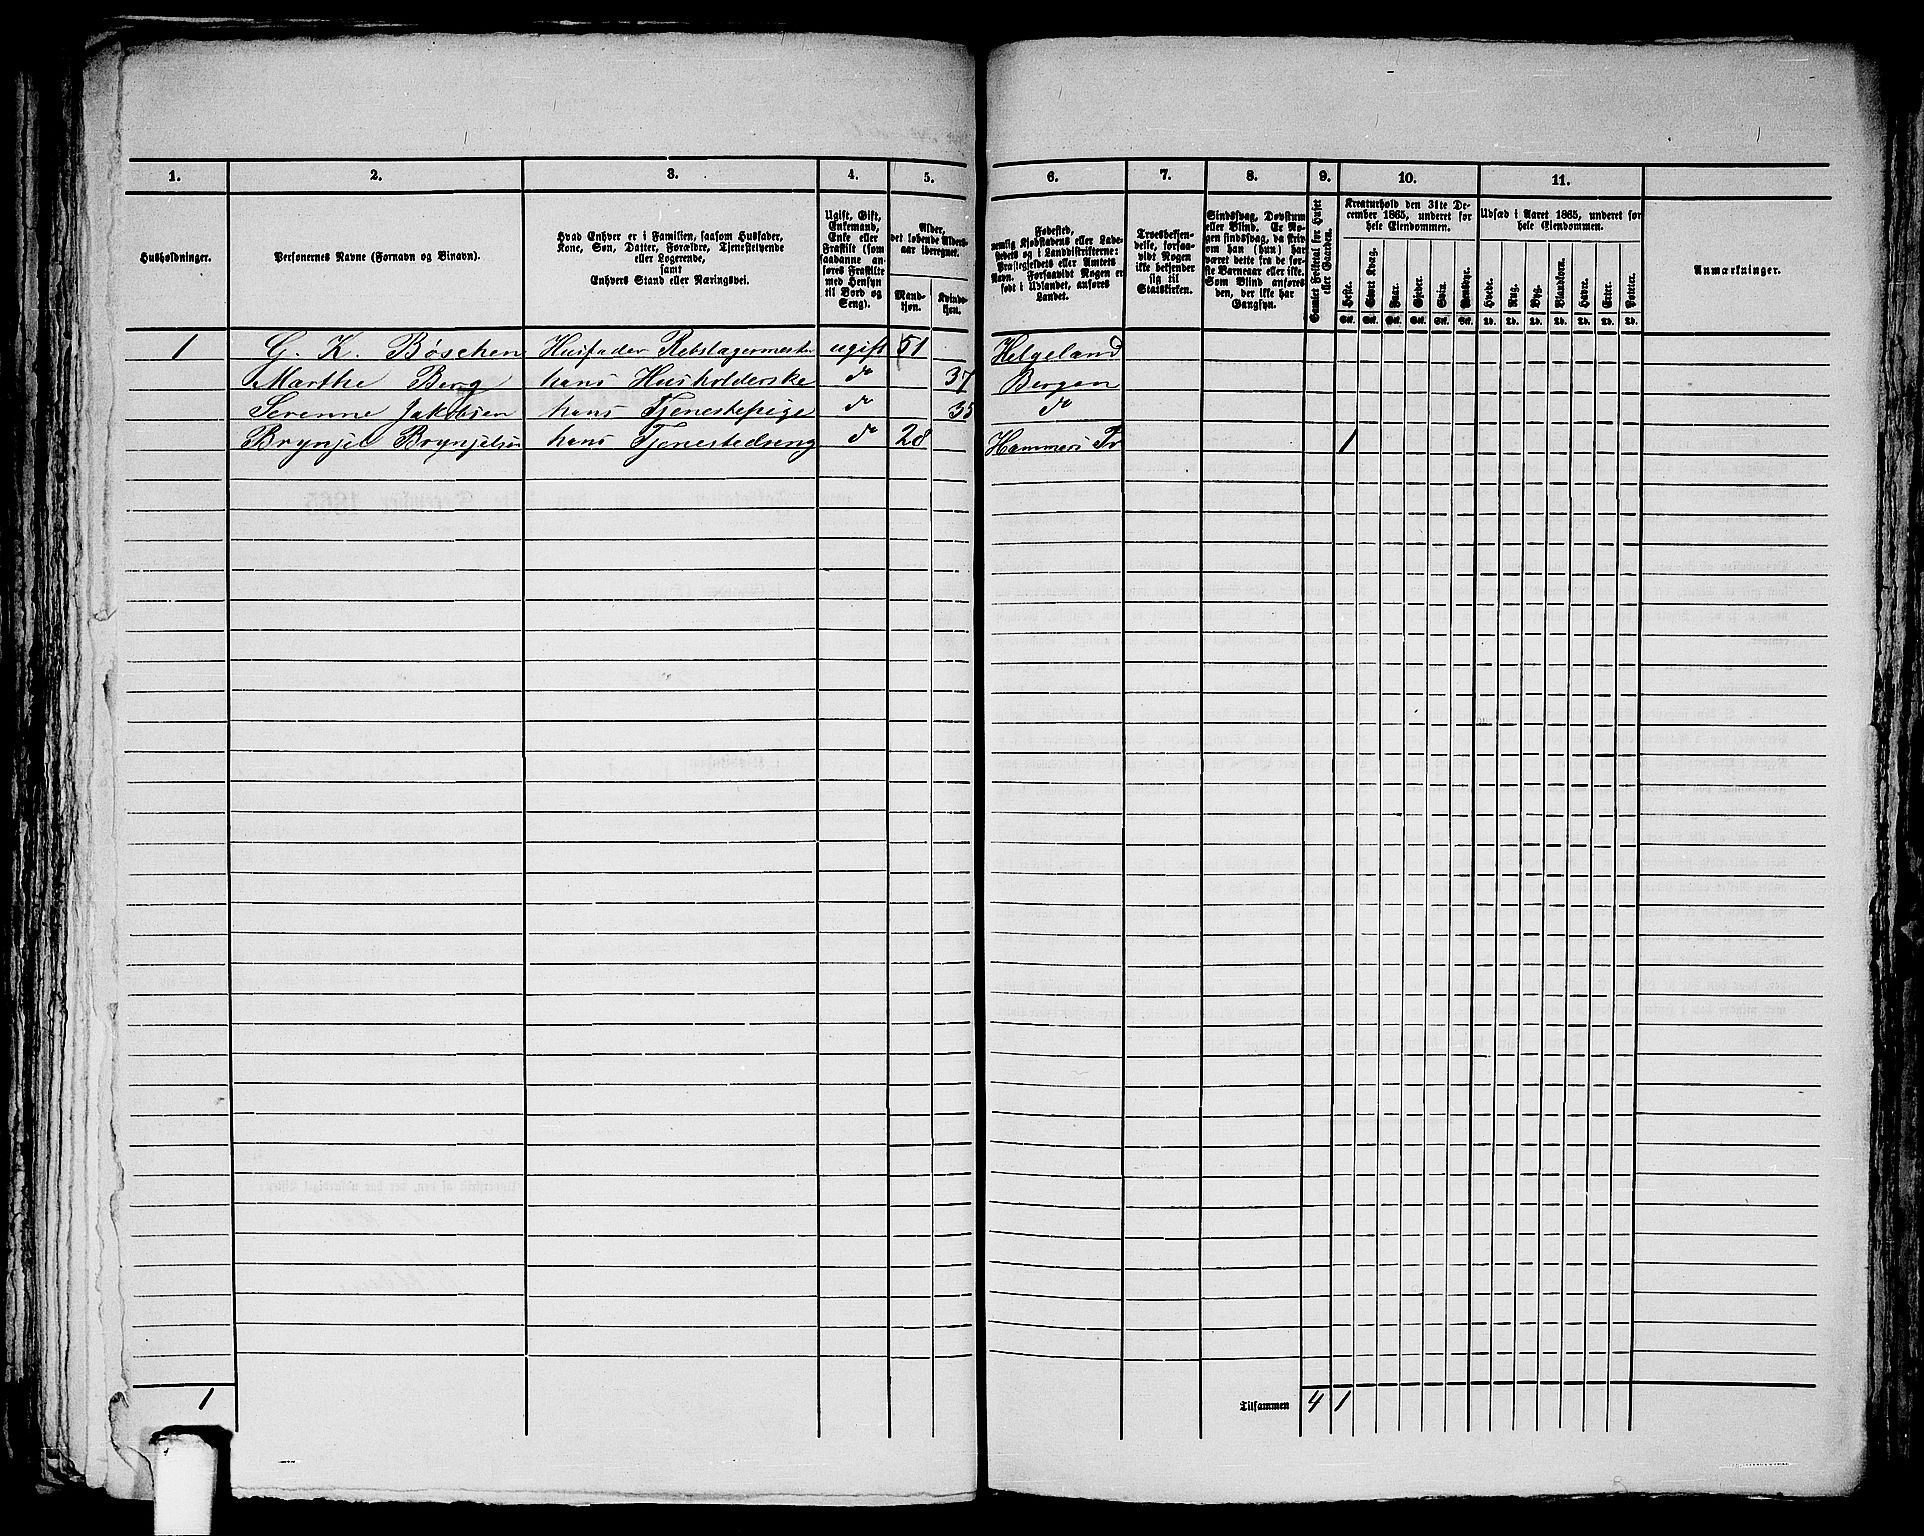 1. 2. 3. 4. 5. 6. 7. 8. 9. 10. 11.
Husholdninger.
Personernes Navne (Fornavn og Binavn).
Hvad Enhver er i Familien, saasom Husfader,
Kone, Søn, Datter, Forældre, Tjenestetyende
eller Logerende,
samt
Enhvers Stand eller Næringsvei.
Ugift, Gift,
Enkemand,
Enke eller
Fraskilt (som
saadanne an-
føres Fraskilte
med Hensyn
til Bord og
Seng).
Alder,
det løbende Alders-
aar iberegnet.
Mand-
kjøn.
Kvinde-
kjøn.
Fødested,
nemlig Kjøbstadens eller Lade-
stedets og i Landdistrikterne:
Præstegjeldets eller Amtets
Navn. Forsaavidt Nogen er
født i Udlandet, anføres
Landet.
Troesbekjen-
delse, forsaa-
vidt Nogen
ikke bekjender
sig til
Statskirken.
Sindssvag, Døvstum
eller Blind. Er No-
gen sindssvag, da hvor-
om han (hun) har
været dette fra de før-
ste Barneaar eller ikke.
Som Blind anføres
den, der ikke har
Gangsyn.
Samlet Folketal for Huset
eller Gaarden.
Kreaturhold den 31te De-
cember 1865, underet for
hele Eiendommen.
Heste. Stort Kvæg. Faar. Gjeder. Svin. Rensdyr.
Stk. Stk. Stk. Stk. Stk. Stk.
Udsæd i Aaret 1865, underet for
hele Eiendommen.
Hvede. Rug. Byg. Blandkorn. Havre. Erter. Poteter.
Td. Td. Td. Td. Td. Td. Td.
Anmærkninger.
1 G. K. Bøschen Husfader Rebslagermester ugift 51 Helgeland
Marthe Berg hans Husholderske do 37 Bergen
Serenne Jakobsen hans Tjenestepige do 35 do
Brynjel Brynjelsen hans Tjenestedreng do 28 Hammers Pr 1
1 Tilsammen 4 1